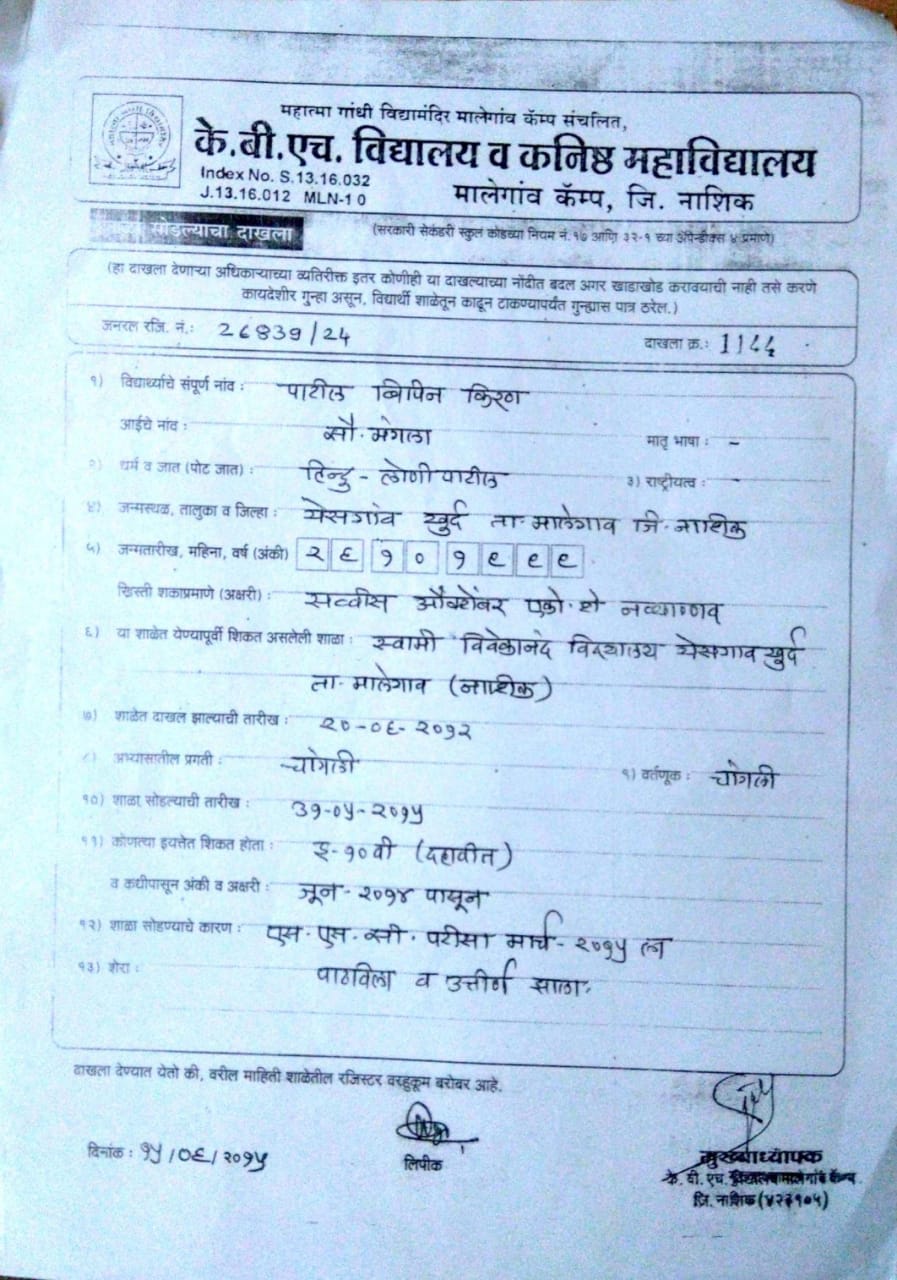 महात्मा गांधी विद्यामंदिर मालेगांव कॅम्प संचलित,
के.बी.एच. विद्यालय व कनिष्ठ महाविद्यालय
Index No. S.13.16.032
J.13.16.012 MLN-10
मालेगांव कॅम्प, जि. नाशिक
सोडल्याचा दाखला
(सरकारी सेकंडरी स्कुल कोडच्या नियम नं. १७ आणि ३२-१ च्या अपेन्डीक्स ४ प्रमाणे)
(हा दाखला देणाऱ्या अधिकाऱ्याच्या व्यतिरीक्त इतर कोणीही या दाखल्याच्या नोंदीत बदल अगर खाडाखोड करावयाची नाही तसे करणे
कायदेशीर गुन्हा असून, विद्यार्थी शाळेतून काढून टाकण्यापर्यंत गुन्ह्यास पात्र ठरेल.)
जनरल रजि. नं.: 26839/24 दाखला क्र.:
१) विद्यार्थ्याचे संपूर्ण नांव : पाटील बिपिन किरण
आईचे नांव : सौ. मंगला मातृ भाषा : -
२) धर्म व जात (पोट जात) : हिन्दु - लोणी पाटील ३) राष्ट्रीयत्व : -
४) जन्मस्थळ, तालुका व जिल्हा : येसगांव खुर्द ता. मालेगाव जि. नाशिक
५) जन्मतारीख, महिना, वर्ष (अंकी) २६१०१९९९
ख्रिस्ती शकाप्रमाणे (अक्षरी) : सव्वीस ऑक्टोंबर एको. शे नव्याण्णव
६) या शाळेत येण्यापूर्वी शिकत असलेली शाळा : स्वामी विवेकानंद विद्यालय येसगाव खुर्द
ता. मालेगाव (नाशिक)
७) शाळेत दाखल झाल्याची तारीख : २०-०६-२०१२
८) अभ्यासातील प्रगती : चांगली ९) वर्तणूक : चांगली
१०) शाळा सोडल्याची तारीख : ३१-०५-२०१५
११) कोणत्या इयत्तेत शिकत होता : इ-१०वी (दहावीत)
व कधीपासून अंकी व अक्षरी : जून - २०१४ पासून
१२) शाळा सोडण्याचे कारण : एस. एस. सी. परीक्षा मार्च - २०१५ ला
१३) शेरा : पाठविला व उत्तीर्ण झाला.
दाखला देण्यात येतो की, वरील माहिती शाळेतील रजिस्टर बरहुकूम बरोबर आहे.
दिनांक : १५/०६/२०१५
लिपीक
मुख्याध्यापक
के. बी. एच. विद्यालय मालेगांव कॅम्प
जि. नाशिक (४२३१०५)